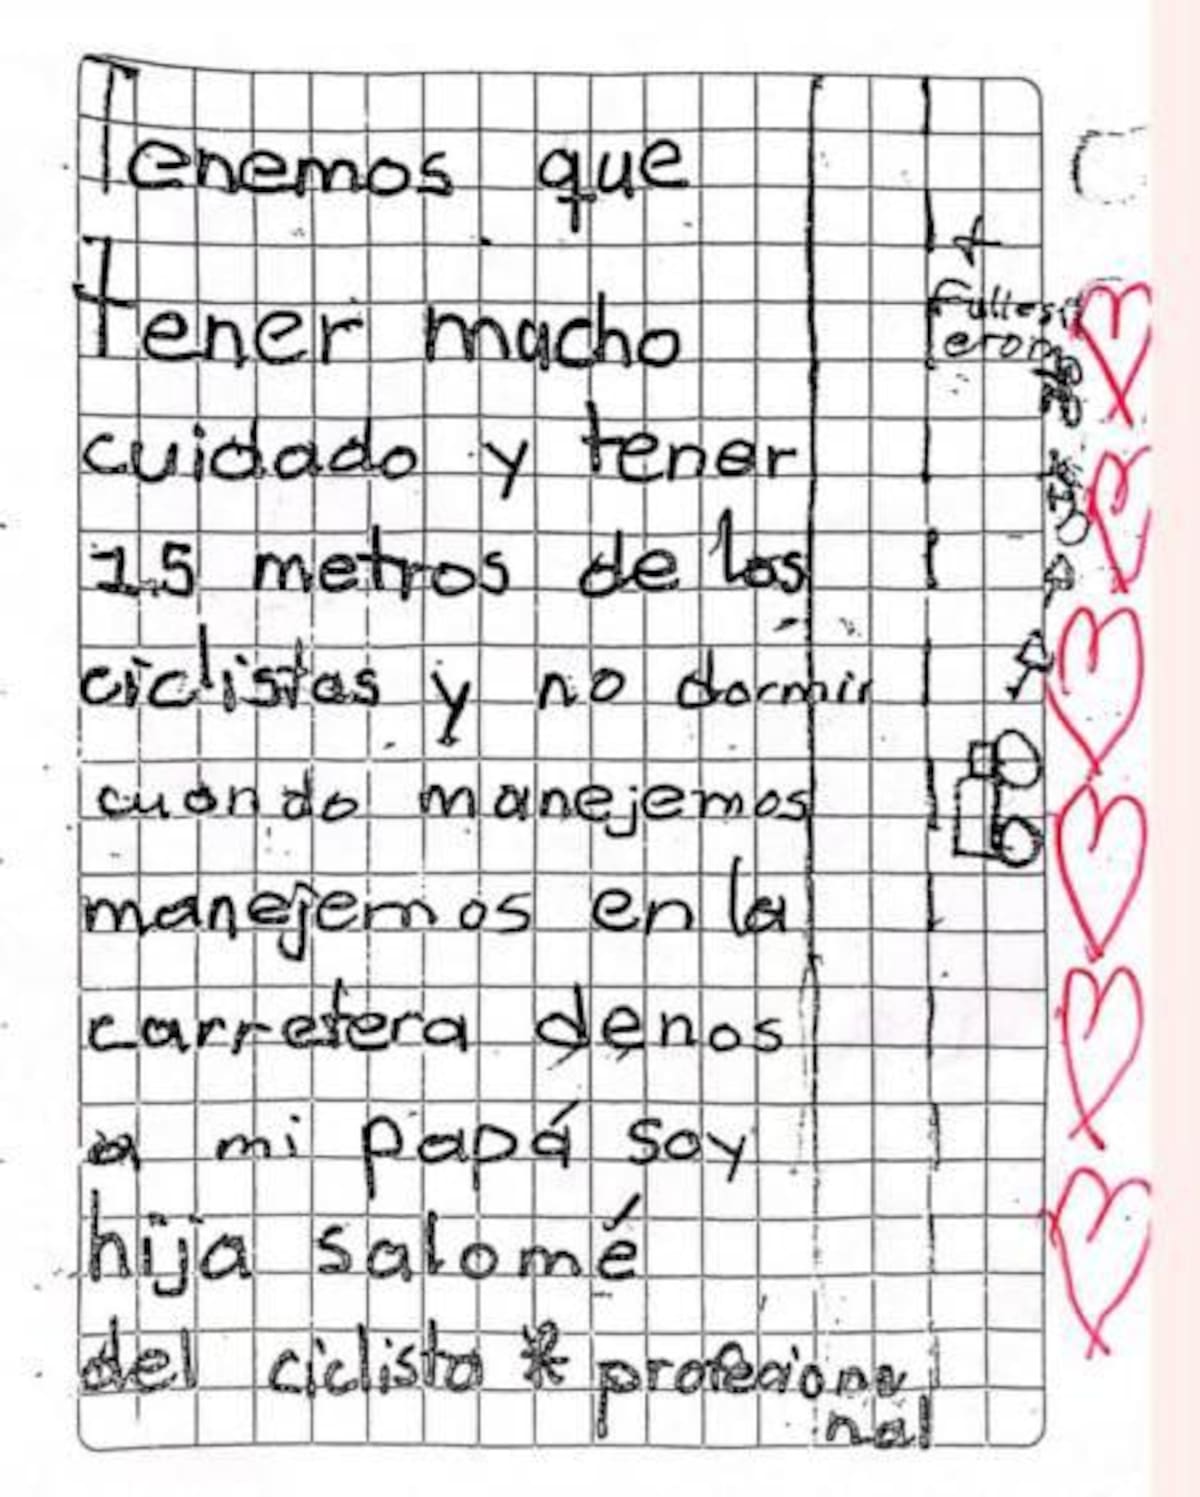 Tenemos que
Tener macho
cuidado y tener
1.5 metros de los
ciclistas y no dormir
cuando manejemos
manejemos en la
carretera denos
a mi papá soy
hija salomé
del ciclista * profeciona
nal